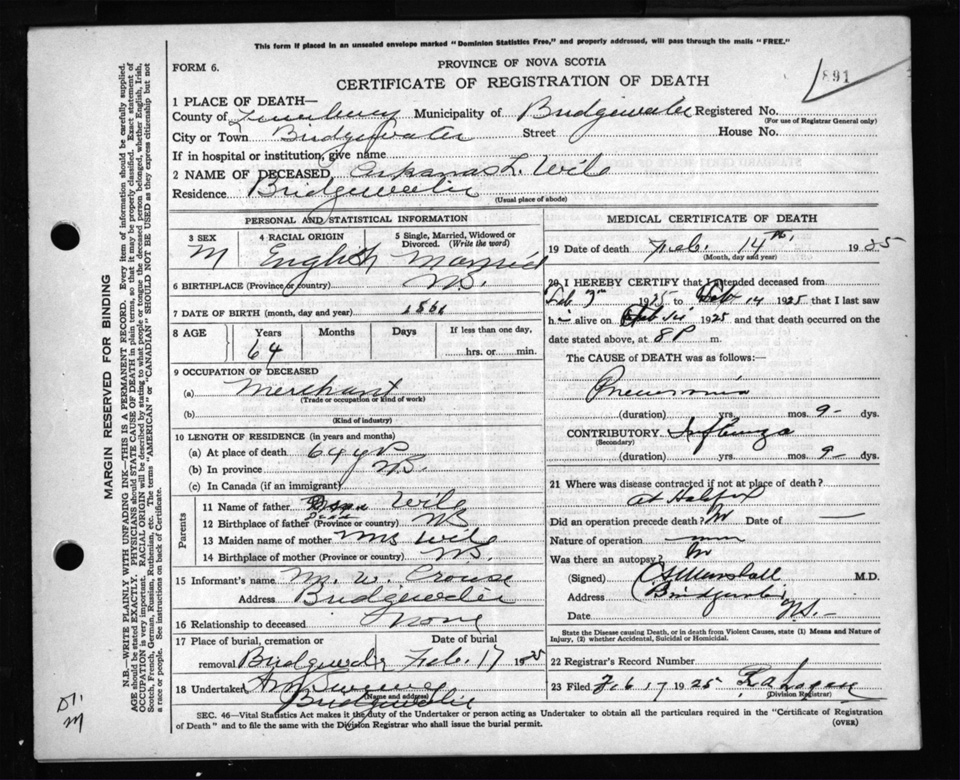 This form if placed in an unsealed envelope marked "Dominion Statistics Free," and properly addressed, will pass through the mails "FREE."
PROVINCE OF NOVA SCOTIA
FORM 6.
CERTIFICATE OF REGISTRATION OF DEATH
891
1 PLACE OF DEATH—
County of Lunenburg Municipality of Bridgewater Registered No.
(For use of Registrar General only)
City or Town Bridgewater Street House No.
If in hospital or institution, give name
2 NAME OF DECEASED Arkanas L. Wile
Residence Bridgewater
(Usual place of abode)
PERSONAL AND STATISTICAL INFORMATION
3 SEX 4 RACIAL ORIGIN 5 Single, Married, Widowed or Divorced. (Write the word)
M English Married
6 BIRTHPLACE (Province or country) N.S.
7 DATE OF BIRTH (month, day and year) 1861
8 AGE Years Months Days If less than one day,
64 hrs. or min.
9 OCCUPATION OF DECEASED
(a) Merchant
(Trade or occupation or kind of work)
(b)
(Kind of industry)
10 LENGTH OF RESIDENCE (in years and months)
(a) At place of death 64 yrs
(b) In province N.S.
(c) In Canada (if an immigrant)
Parents
11 Name of father Wile
12 Birthplace of father (Province or country) NS
13 Maiden name of mother Mrs Wile
14 Birthplace of mother (Province or country) N.S.
15 Informant's name M. W. Crouse
Address Bridgewater
16 Relationship to deceased None
17 Place of burial, cremation or removal Date of burial
Bridgewater Feb. 17 1925
18 Undertaker
(Name and address)
Bridgewater
MEDICAL CERTIFICATE OF DEATH
19 Date of death Feb. 14th, 1925
(Month, day and year)
20 I HEREBY CERTIFY that I attended deceased from
Feb 7 1925 to Feb 14 1925 that I last saw
h alive on 1925 and that death occurred on the
date stated above, at 8 P m.
The CAUSE OF DEATH was as follows:—
Pneumonia
(duration) yrs. mos. 9 dys.
CONTRIBUTORY. Influenza
(Secondary)
(duration) yrs. mos. 9 dys.
21 Where was disease contracted if not at place of death?
At Halifax
Did an operation precede death? No Date of —
Nature of operation
Was there an autopsy? No
(Signed) Marshall M.D.
Address Bridgewater
Date N.S.
State the Disease causing Death, or in death from Violent Causes, state (1) Means and Nature of Injury, (2) whether Accidental, Suicidal or Homicidal.
22 Registrar's Record Number
23 Filed Feb 17 1925 Logan
(Division Registrar)
SEC. 46—Vital Statistics Act makes it the duty of the Undertaker or person acting as Undertaker to obtain all the particulars required in the "Certificate of Registration
of Death" and to file the same with the Division Registrar who shall issue the burial permit.
(OVER)
MARGIN RESERVED FOR BINDING
N.B.—WRITE PLAINLY WITH UNFADING INK—THIS IS A PERMANENT RECORD. Every item of information should be carefully supplied.
AGE should be stated EXACTLY. PHYSICIANS should STATE CAUSE OF DEATH in plain terms, so that it may be properly classified. Exact statement of
OCCUPATION is very important. RACIAL ORIGIN will be described by stating to what people or tongue the deceased person belonged, whether English, Irish,
Scotch, French, German, Russian, Ruthenian, etc. The terms "AMERICAN" or "CANADIAN" SHOULD NOT BE USED as they express citizenship but not
a race or people. See instructions on back of Certificate.